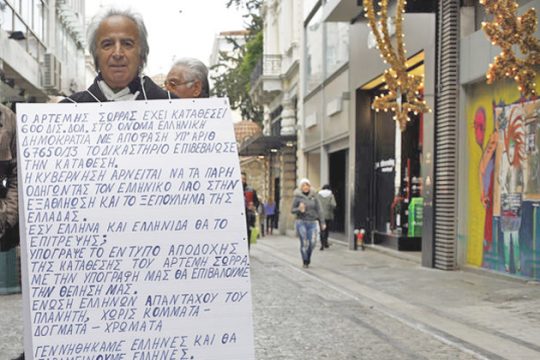 Ο ΑΡΤΕΜΗΣ ΣΩΡΡΑΣ ΕΧΕΙ ΚΑΤΑΘΕΣΕΙ
600 ΔΙΣ. ΔΟΛ. ΣΤΟ ΟΝΟΜΑ ΕΛΛΗΝΙΚΗ
ΔΗΜΟΚΡΑΤΙΑ ΜΕ ΑΠΟΦΑΣΗ ΥΠ' ΑΡΙΘ
67650/15 ΤΟ ΔΙΚΑΣΤΗΡΙΟ ΕΠΙΒΕΒΑΙΩΣΕ
ΤΗΝ ΚΑΤΑΘΕΣΗ.
Η ΚΥΒΕΡΝΗΣΗ ΑΡΝΕΙΤΑΙ ΝΑ ΤΑ ΠΑΡΗ
ΟΔΗΓΩΝΤΑΣ ΤΟΝ ΕΛΛΗΝΙΚΟ ΛΑΟ ΣΤΗΝ
ΕΞΑΘΛΙΩΣΗ ΚΑΙ ΤΟ ΞΕΠΟΥΛΗΜΑ ΤΗΣ
ΕΛΛΑΔΑΣ.
ΕΣΥ ΕΛΛΗΝΑ ΚΑΙ ΕΛΛΗΝΙΔΑ ΘΑ ΤΟ
ΕΠΙΤΡΕΨΗΣ;
ΥΠΟΓΡΑΨΕ ΤΟ ΕΝΤΥΠΟ ΑΠΟΔΟΧΗΣ
ΤΗΣ ΚΑΤΑΘΕΣΗΣ ΤΟΥ ΑΡΤΕΜΗ ΣΩΡΡΑ.
ΜΕ ΤΗΝ ΥΠΟΓΡΑΦΗ ΜΑΣ ΘΑ ΕΠΙΒΑΛΟΥΜΕ
ΤΗΝ ΘΕΛΗΣΗ ΜΑΣ.
ΕΝΩΣΗ ΕΛΛΗΝΩΝ ΑΠΑΝΤΑΧΟΥ ΤΟΥ
ΠΛΑΝΗΤΗ, ΧΩΡΙΣ ΚΟΜΜΑΤΑ-
ΔΟΓΜΑΤΑ - ΧΡΩΜΑΤΑ
ΓΕΝΝΗΘΗΚΑΜΕ ΕΛΛΗΝΕΣ ΚΑΙ ΘΑ
ΕΛΛΗΝΕΣ.